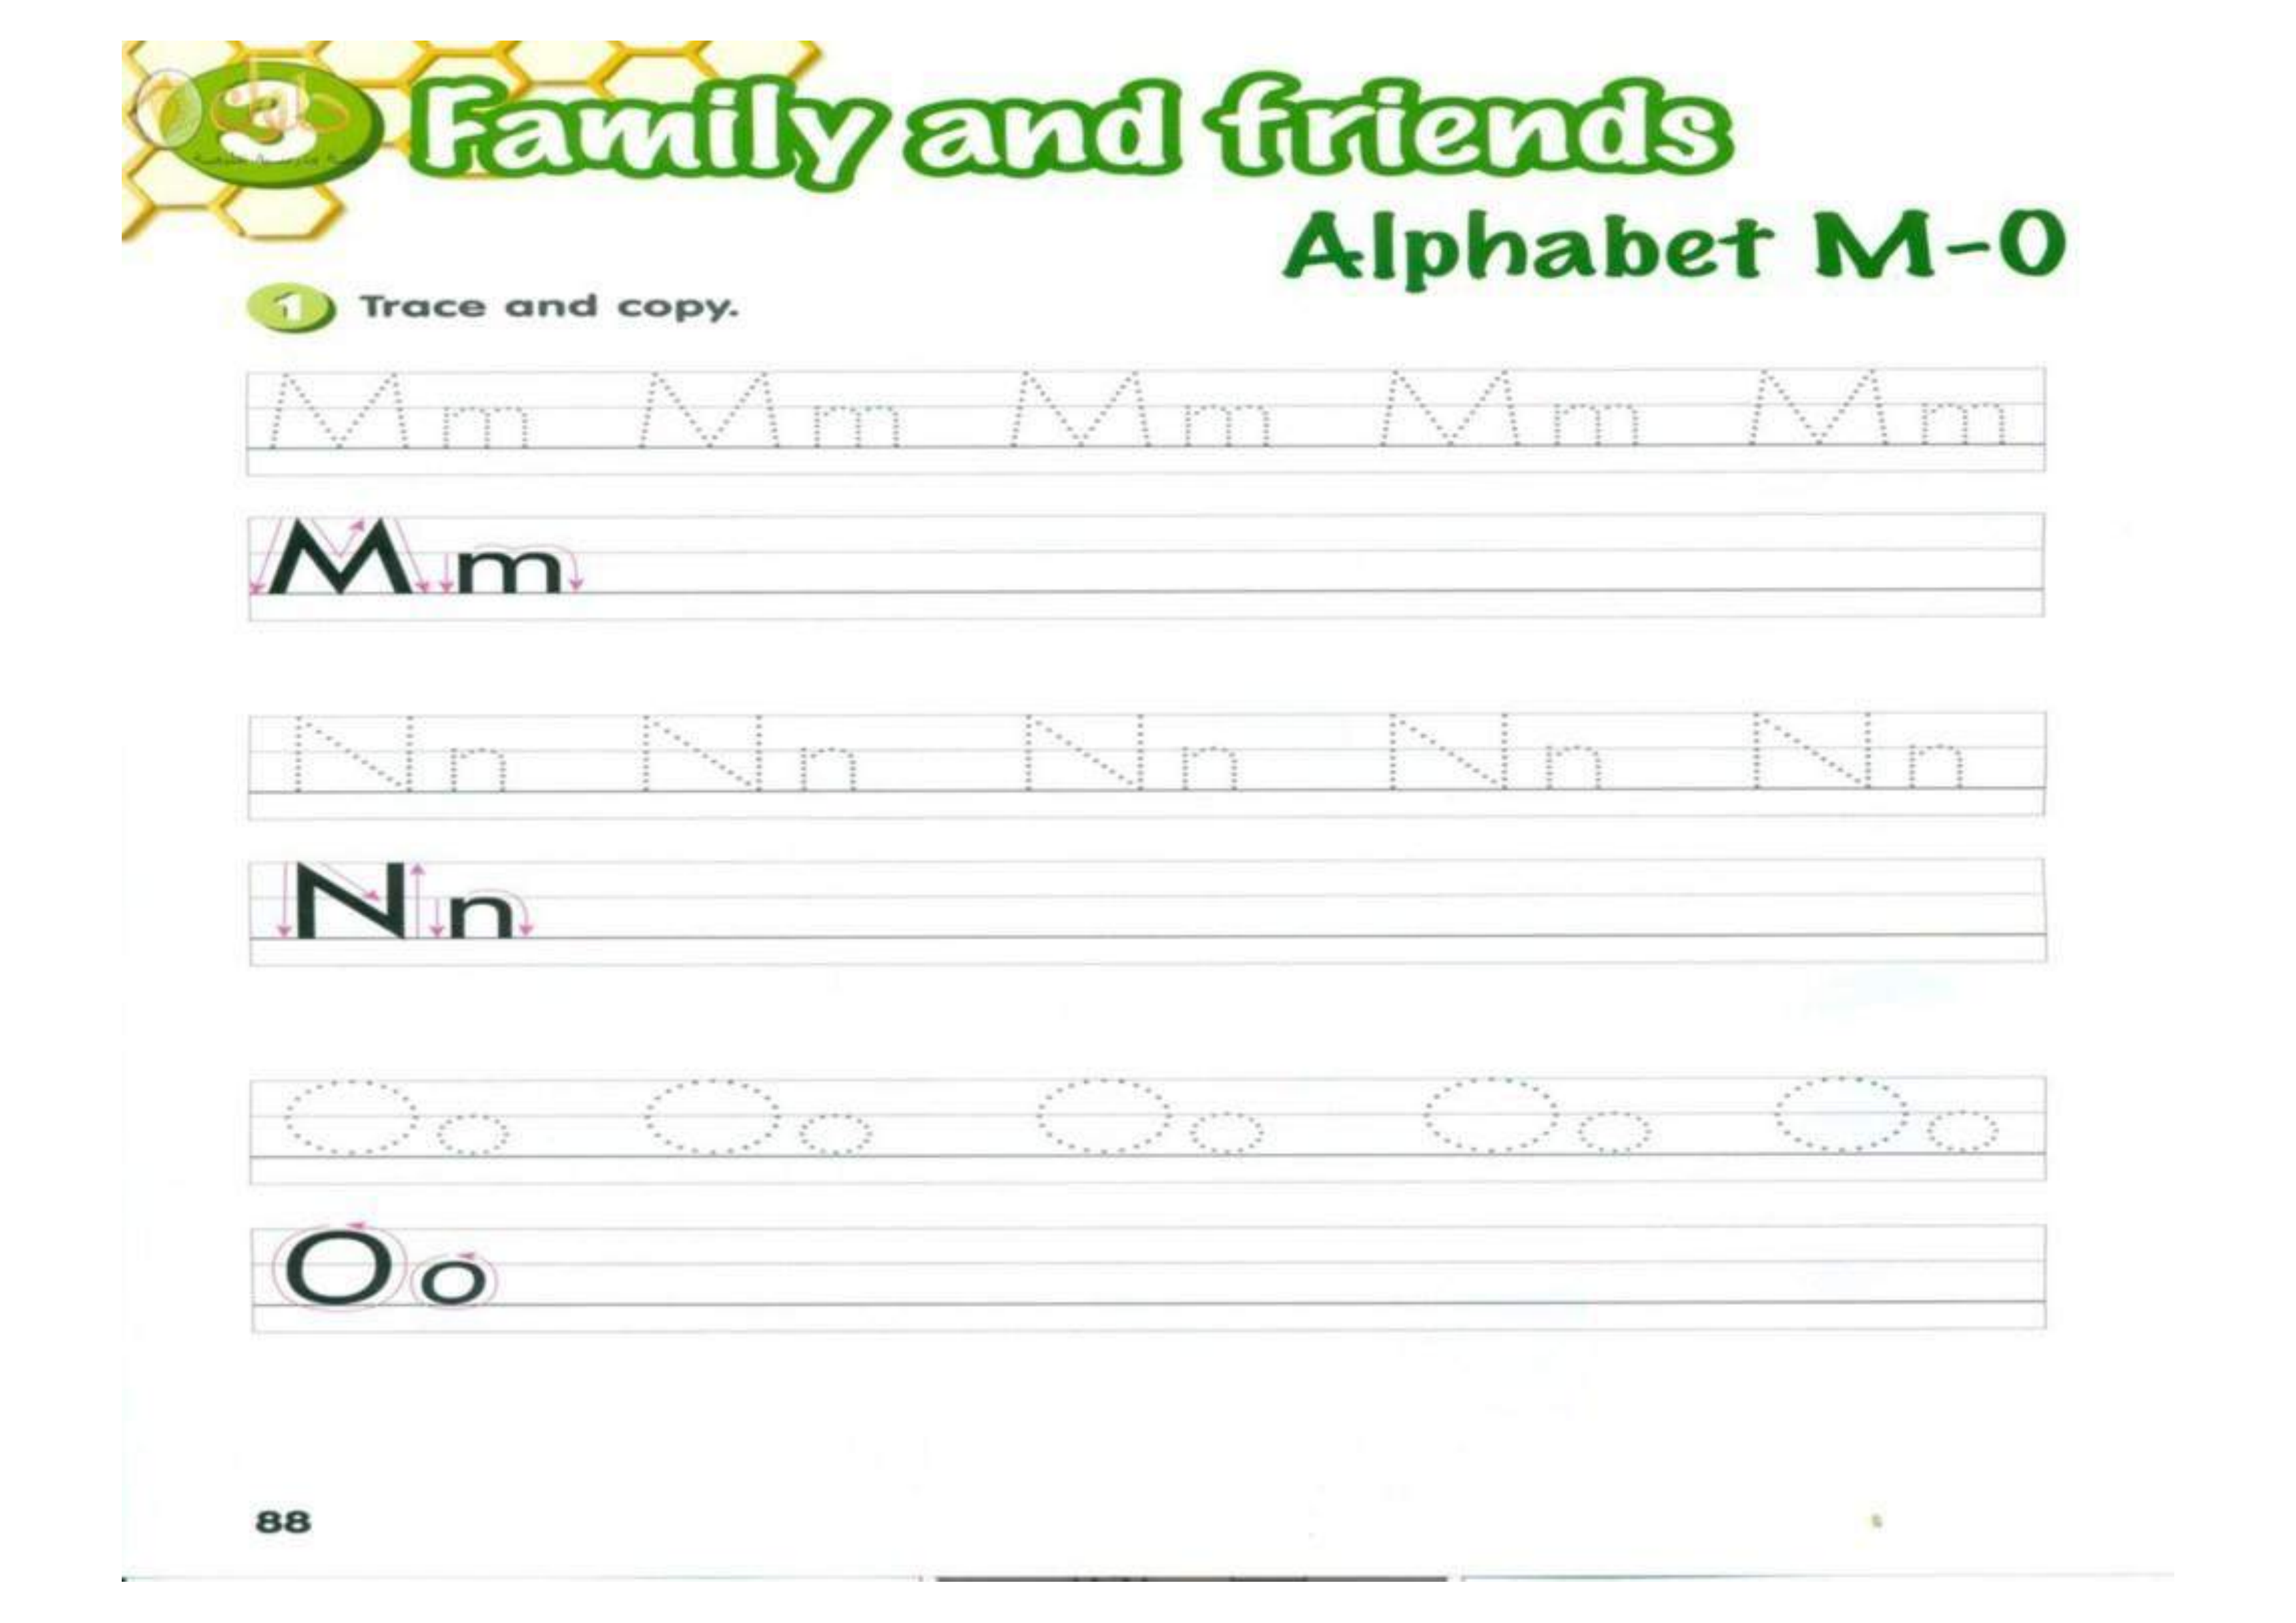 3 Family and friends
Alphabet M-O
1 Trace and copy.
Mm Mm Mm Mm Mm
Mm
Nn Nn Nn Nn Nn
Nn
Oo Oo Oo Oo Oo
Oo
88